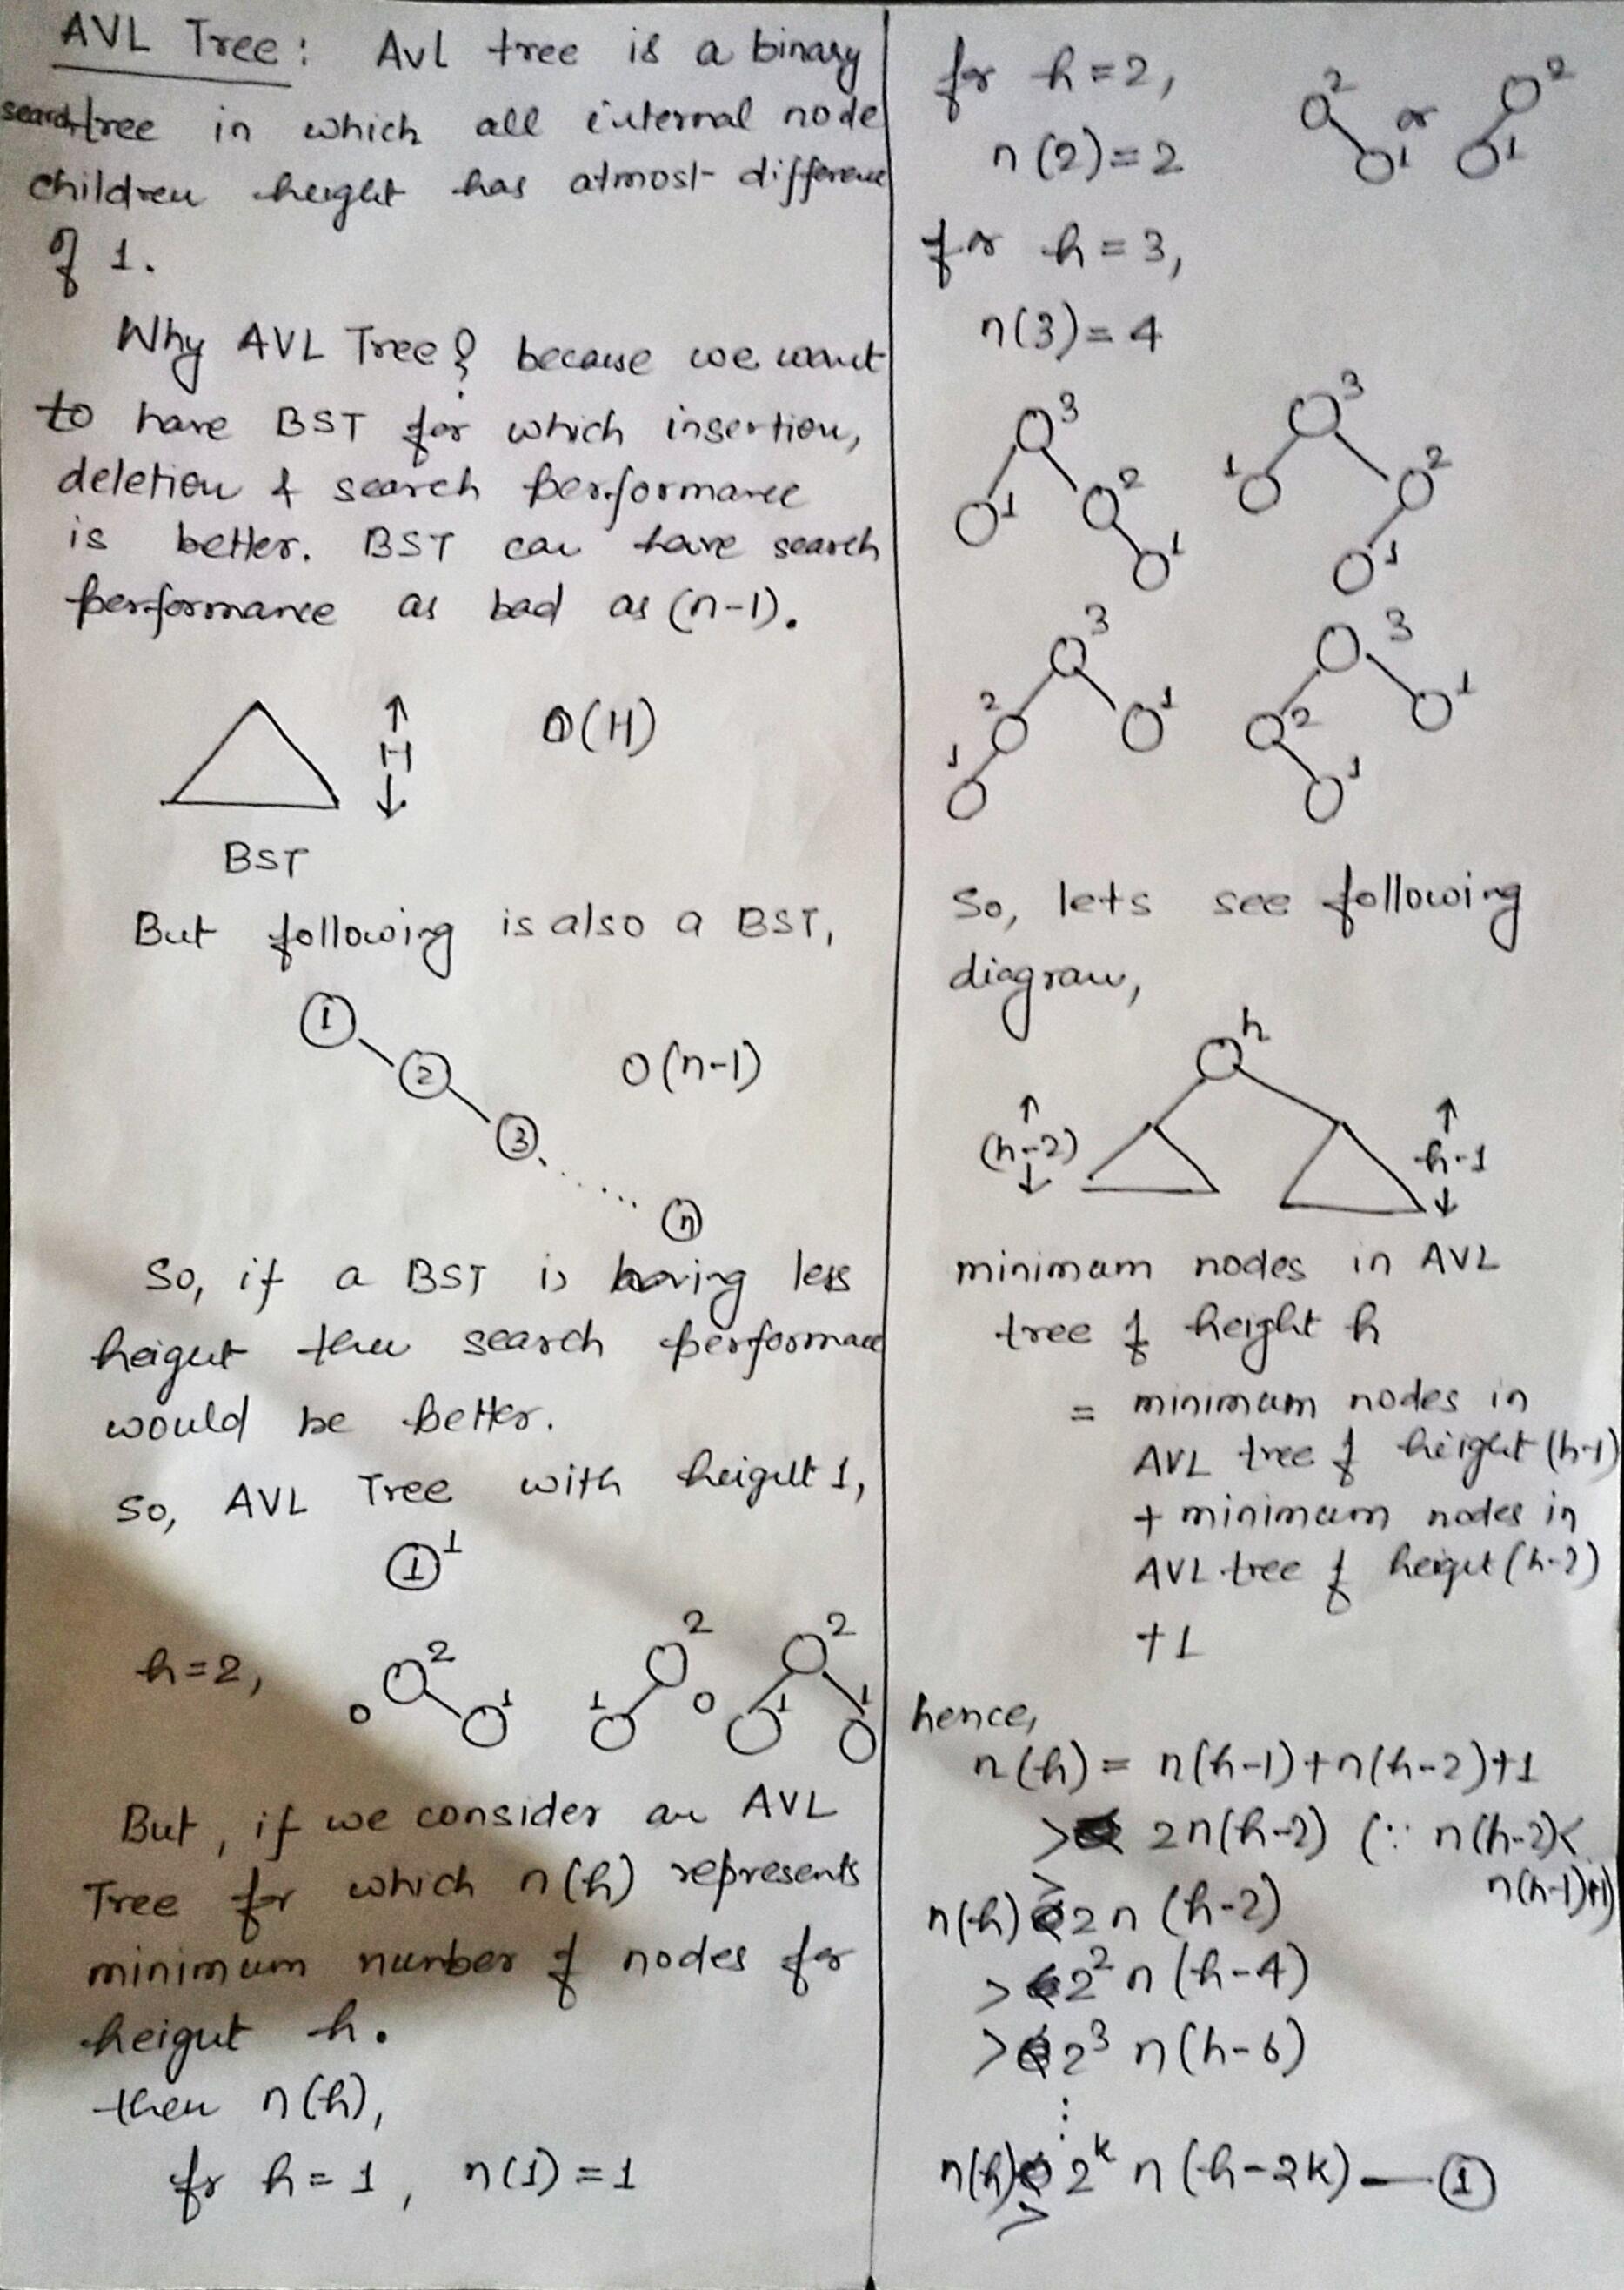 AVL Tree: AVL tree is a binary
search tree in which all internal node
children height has atmost difference
of 1.
Why AVL Tree? because we want
to have BST for which insertion,
deletion & search performance
is better. BST can have search
performance as bad as (n-1).
↑
H
↓
O(H)
BST
But following is also a BST,
1
2
3
n
O(n-1)
So, if a BST is having less
height then search performance
would be better.
So, AVL Tree with height 1,
1 1
h=2,
2
0 1
2
1 0
2
1 1
But, if we consider an AVL
Tree for which n(h) represents
minimum number of nodes for
height h.
then n(h),
for h=1, n(1)=1
for h=2,
n(2)=2
2
1
or
2
1
for h=3,
n(3)=4
3
1 2
1
3
1 2
1
3
2 1
1
3
2 1
1
So, lets see following
diagram,
h
↑
(h-2)
↓
↑
h-1
↓
minimum nodes in AVL
tree of height h
= minimum nodes in
AVL tree of height (h-1)
+ minimum nodes in
AVL tree of height (h-2)
+1
hence,
n(h) = n(h-1)+n(h-2)+1
> 2n(h-2) (∵ n(h-2)<
n(h-1)+1)
n(h) > 2n (h-2)
> 2² n (h-4)
> 2³ n (h-6)
⋮
n(h) > 2ᵏ n (h-2k) — 1